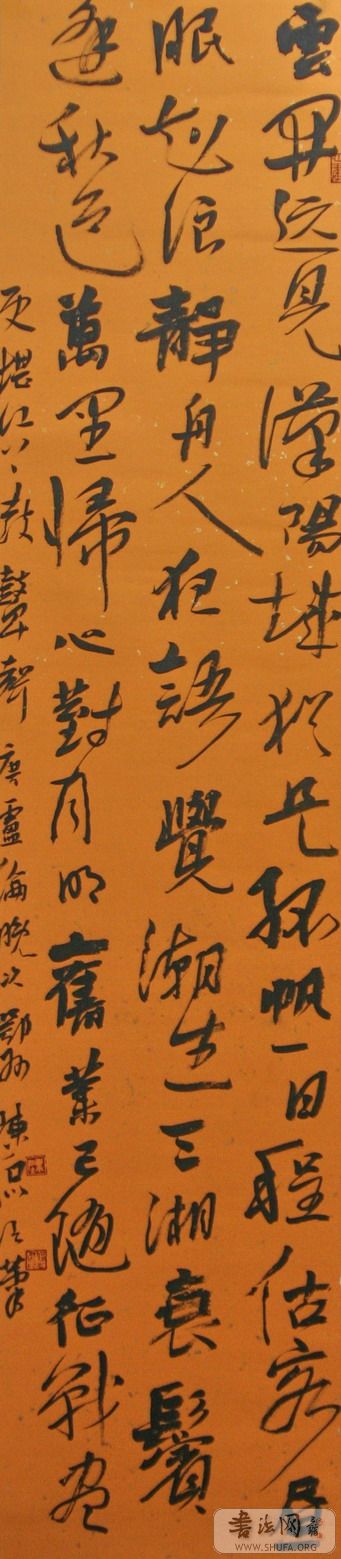 雲開远見漢陽城猶是孤帆一日程估客昼
眠知浪靜舟人夜語覺潮生三湘衰鬢
逢秋色萬里歸心對月明舊業已随征戰尽
更堪江上鼓鼙聲 唐盧倫晚次鄂州 陳
書法网
WWW.SHUFA.ORG